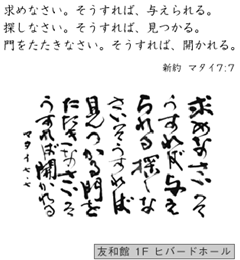 求めなさい。そうすれば、与えられる。
探しなさい。そうすれば、見つかる。
門をたたきなさい。そうすれば、開かれる。
新約 マタイ7:7
求めなさいそ
うすれば与え
られる探しな
さいそうすれば
見つかる門を
たたきなさいそ
うすれば開かれる
マタイ七・七
友和館 1F ヒバードホール